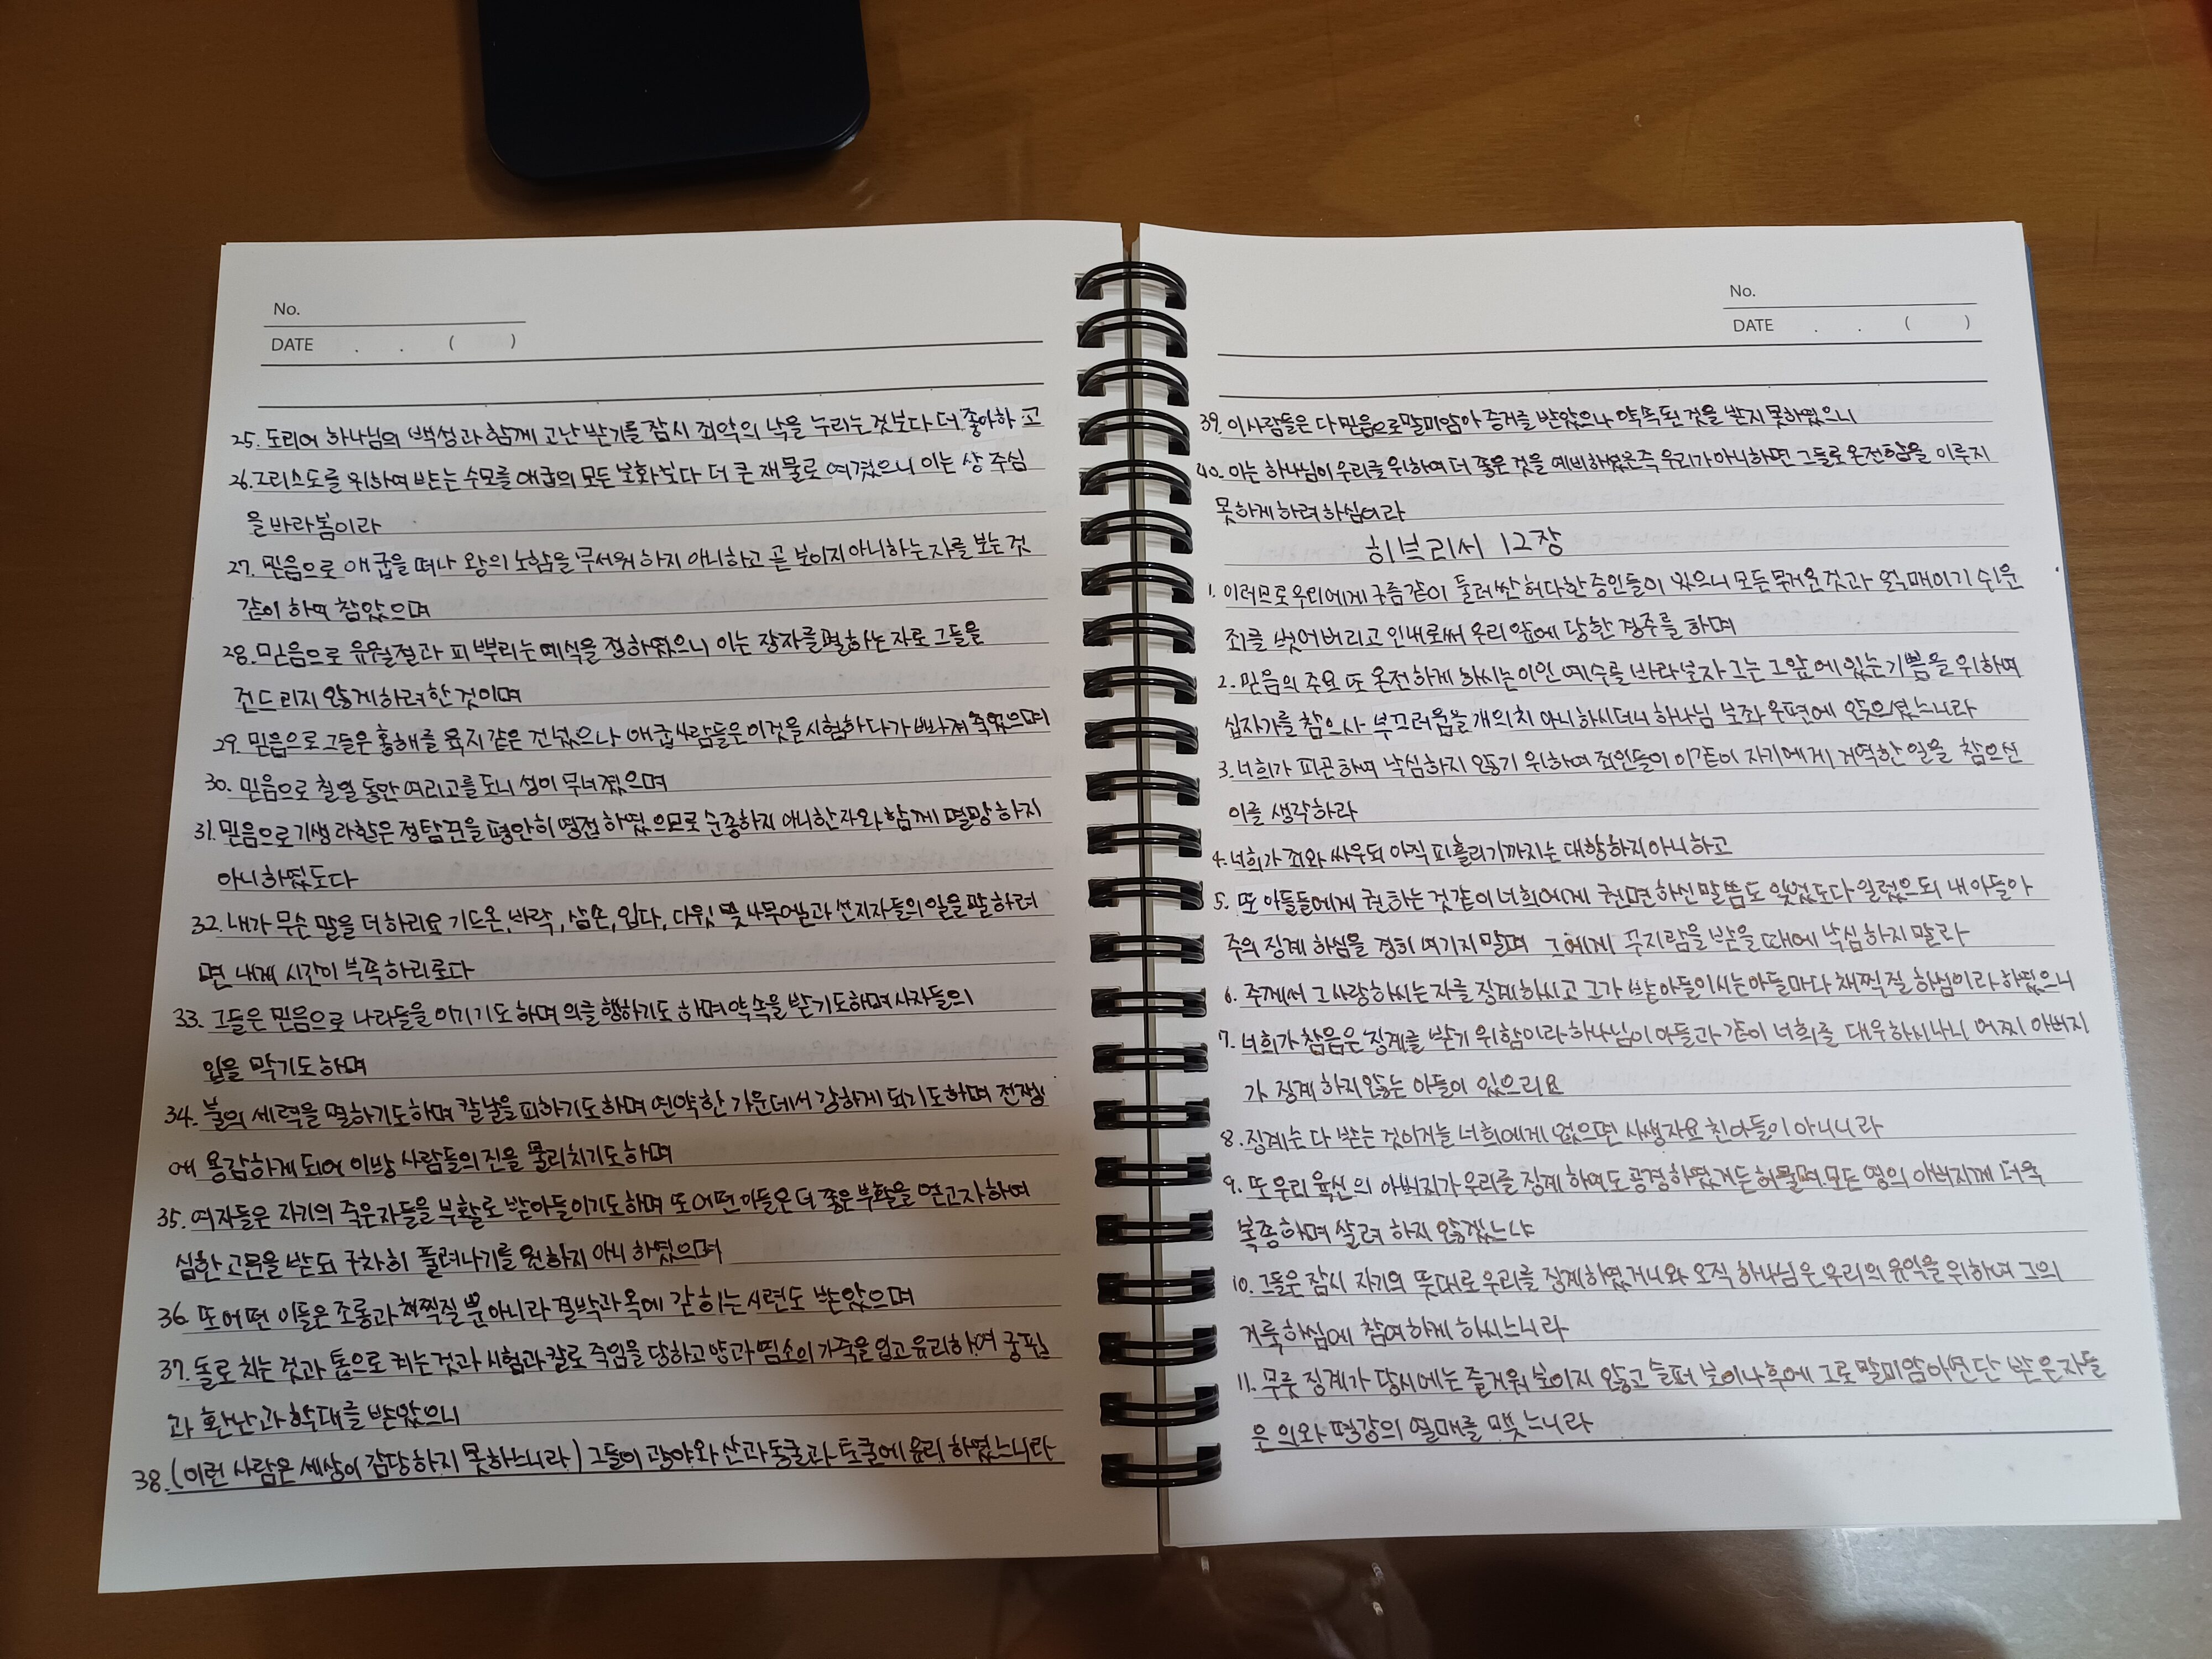 No.
DATE . . ( )
25. 도리어 하나님의 백성과 함께 고난 받기를 잠시 죄악의 낙을 누리는 것보다 더 좋아하고
26. 그리스도를 위하여 받는 수모를 애굽의 모든 보화보다 더 큰 재물로 여겼으니 이는 상 주심
을 바라봄이라
27. 믿음으로 애굽을 떠나 왕의 노함을 무서워 하지 아니하고 곧 보이지 아니하는 자를 보는 것
같이 하여 참았으며
28. 믿음으로 유월절과 피 뿌리는 예식을 정하였으니 이는 장자를 멸하는 자로 그들을
건드리지 않게 하려 한 것이며
29. 믿음으로 그들은 홍해를 육지 같은 건넜으나 애굽 사람들은 이것을 시험하다가 빠져 죽었으며
30. 믿음으로 칠일 동안 여리고를 도니 성이 무너졌으며
31. 믿음으로 기생 라합은 정탐꾼을 평안히 영접 하였으므로 순종하지 아니한 자와 함께 멸망하지
아니하였도다
32. 내가 무슨 말을 더 하리요 기드온, 바락, 삼손, 입다, 다윗, 및 사무엘과 선지자들의 일을 말하려
면 내게 시간이 부족하리로다
33. 그들은 믿음으로 나라들을 이기기도 하며 의를 행하기도 하며 약속을 받기도하며 사자들의
입을 막기도하며
34. 불의 세력을 멸하기도하며 칼날을 피하기도하며 연약한 가운데서 강하게 되기도하며 전쟁
에 용감하게 되어 이방 사람들의 진을 물리치기도하며
35. 여자들은 자기의 죽은자들을 부활로 받아들이기도하며 또 어떤 이들은 더 좋은 부활을 얻고자 하여
심한 고문을 받되 구차히 풀려나기를 원하지 아니 하였으며
36. 또 어떤 이들은 조롱과 채찍질 뿐 아니라 결박과 옥에 갇히는 시련도 받았으며
37. 돌로 치는 것과 톱으로 켜는 것과 시험과 칼로 죽임을 당하고 양과 염소의 가죽을 입고 유리하여 궁핍
과 환난과 학대를 받았으니
38. (이런 사람은 세상이 감당하지 못하느니라) 그들이 광야와 산과 동굴과 토굴에 유리 하였느니라
No.
DATE . . ( )
39. 이사람들은 다 믿음으로 말미암아 증거를 받았으나 약속된 것을 받지 못하였으니
40. 이는 하나님이 우리를 위하여 더 좋은 것을 예비하셨은즉 우리가 아니하면 그들로 온전함을 이루지
못하게 하려 하심이라
히브리서 12장
1. 이러므로 우리에게 구름같이 둘러싼 허다한 증인들이 있으니 모든 무거운 것과 얽매이기 쉬운
죄를 벗어버리고 인내로써 우리 앞에 당한 경주를 하며
2. 믿음의 주요 또 온전하게 하시는 이인 예수를 바라보자 그는 그 앞에 있는 기쁨을 위하여
십자가를 참으사 부끄러움을 개의치 아니하시더니 하나님 보좌 우편에 앉으셨느니라
3. 너희가 피곤하여 낙심하지 않기 위하여 죄인들이 이같이 자기에게 거역한 일을 참으신
이를 생각하라
4. 너희가 죄와 싸우되 아직 피흘리기까지는 대항하지 아니하고
5. 또 아들들에게 권하는 것같이 너희에게 권면하신 말씀도 잊었도다 일렀으되 내 아들아
주의 징계 하심을 경히 여기지 말며 그에게 꾸지람을 받을 때에 낙심하지 말라
6. 주께서 그 사랑하시는 자를 징계하시고 그가 받아들이시는 아들마다 채찍질 하심이라 하였으니
7. 너희가 참음은 징계를 받기 위함이라 하나님이 아들과 같이 너희를 대우하시나니 어찌 아버지
가 징계 하지않는 아들이 있으리요
8. 징계는 다 받는 것이거늘 너희에게 없으면 사생자요 친아들이 아니니라
9. 또 우리 육신의 아버지가 우리를 징계 하여도 공경하였거든 하물며 모든 영의 아버지께 더욱
복종하며 살려 하지 않겠느냐
10. 그들은 잠시 자기의 뜻대로 우리를 징계하였거니와 오직 하나님은 우리의 유익을 위하여 그의
거룩하심에 참여하게 하시느니라
11. 무릇 징계가 당시에는 즐거워 보이지 않고 슬퍼 보이나 후에 그로 말미암아 연단 받은 자들
은 의와 평강의 열매를 맺느니라